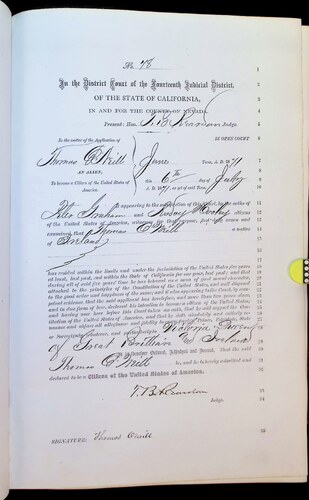 No. 78
In the District Court of the Fourteenth Judicial District,
OF THE STATE OF CALIFORNIA,
IN AND FOR THE COUNTY OF NEVADA.
Present: Hon. T. B. Reardan Judge.
IN OPEN COURT
In the matter of the Application of
Thomas O'Neill
AN ALIEN,
To become a Citizen of the United States of America.
June Term, A. D. 1871
6th day of July
A. D. 1871, as yet of said Term.
It appearing to the satisfaction of this Court, by the oaths of
Peter Graham and citizens
of the United States of America, witnesses for that purpose, first duly sworn and
examined, that Thomas O'Neill a native
of Ireland
has resided within the limits and under the jurisdiction of the United States for years
at least, last past, and within the State of California for one year last past; and that
during all of said five years' time he has behaved as a man of good moral character,
attached to the principles of the Constitution of the United States, and well disposed
to the good order and happiness of the same; and it also appearing to the Court, by competent
evidence, that the said applicant has heretofore, and more than two years since,
and in due form of law, declared his intention to become a citizen of the United States,
and having now here before this Court taken an oath, that he will support the Constitution
of the United States of America, and that he doth absolutely and entirely renounce
and abjure all allegiance and fidelity to every foreign Prince, Potentate, State
or Sovereignty whatever, and particularly to Victoria Queen
of Great Brittain & Ireland
It is therefore Ordered, Adjudged and Decreed, That the said
Thomas O'Neill be, and he is hereby admitted and
declared to be a Citizen of the United States of America.
T. B. Reardan
Judge.
SIGNATURE: Thomas Oneill